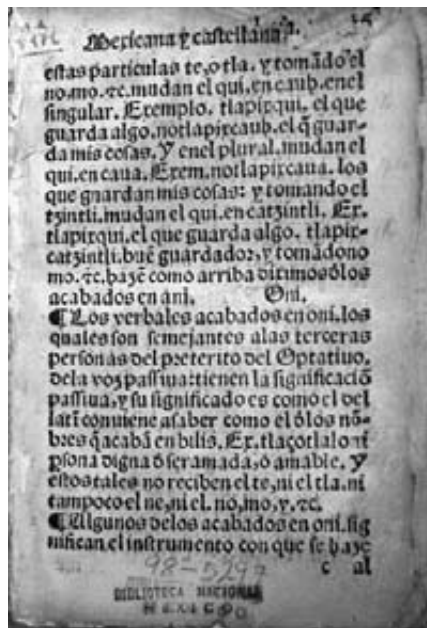 Mexicana y castellana.
estas particulas te, o tla. y tomãdo el
no, mo. ⁊c. mudan el qui, en cauh. enel
singular. Exemplo. tlapixqui. el que
guarda algo. notlapixcauh. el q̃ guar-
da mis cosas. Y enel plural. mudan el
qui. en caua. Exem. notlapixcaua. los
que guardan mis cosas: y tomando el
tzintli. mudan el qui. en catzintli. Ex.
tlapixqui. el que guarda algo. tlapix-
catzintli. buẽ guardador, y tomãdo no
mo. ⁊c. hazẽ como arriba diximos ďlos
acabados en ani. Oni.
¶Los verbales acabados en oni. los
quales son semejantes alas terceras
personas del preterito del Optatiuo.
dela voz passiua: tienen la significaciõ
passiua, y su significado es como el del
latĩ conuiene asaber como el ďlos nõ-
bres q̃ acabã en bilis. Ex. tlaçotlaloni
psona digna ď ser amada, o amable. Y
estos tales no reciben el te, ni el tla. ni
tampoco el ne, ni el. no, mo, y. ⁊c.
¶Algunos delos acabados en oni. sig
nifican el instrumento con que se haze
c al
98-5297
BIBLIOTECA NACIONAL
MEXICO